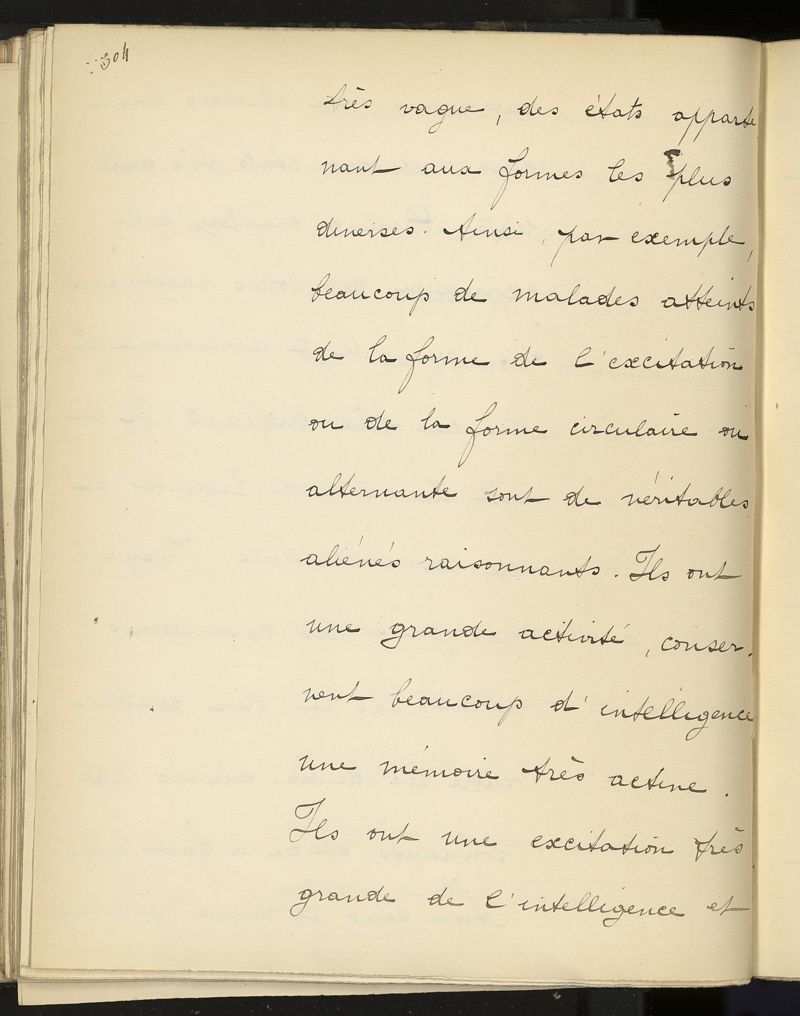 304
très vague, des états apparte
nant aux formes les plus
diverses. Ainsi, par exemple,
beaucoup de malades atteints
de la forme de l'excitation
ou de la forme circulaire ou
alternante sont de véritables
aliénés raisonnants. Ils ont
une grande activité, conser-
vent beaucoup d'intelligence
une mémoire très active.
Ils ont une excitation très
grande de l'intelligence et